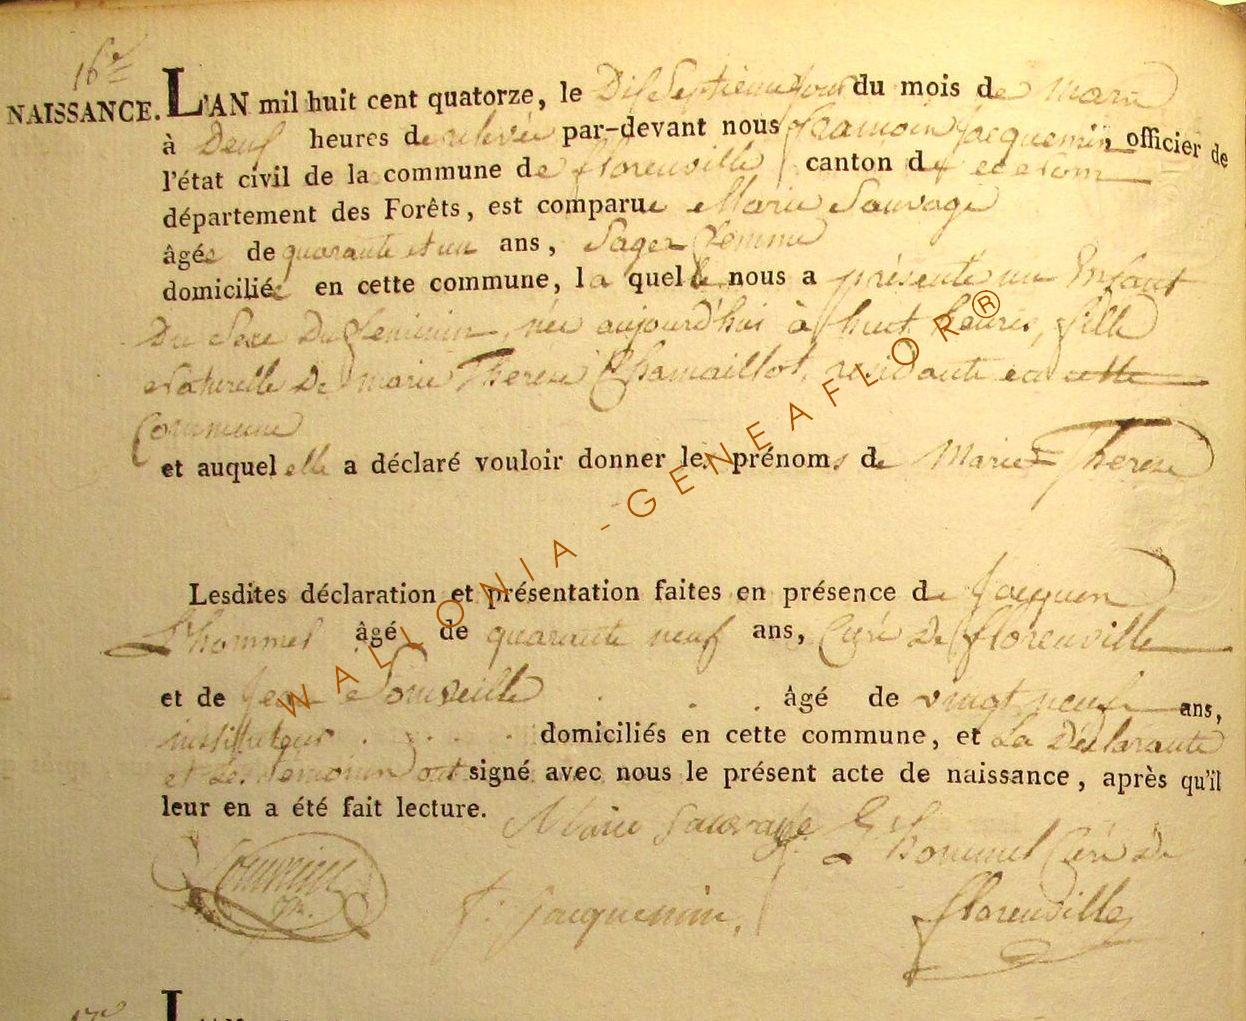 16e
NAISSANCE. L'AN mil huit cent quatorze, le Dix Septieme jour du mois de Mars
à Deux heures de relevée par-devant nous francois jacquemin, officier de
l'état civil de la commune de florenville canton de
département des Forêts, est comparue Marie Sauvage
âgée de quarante et un ans, Sage femme
domiciliée en cette commune, la quelle nous a présenté un Enfant
Du Sexe Du feminin, née aujourd'hui à huit heures, fille
Naturelle De marie Therese Chamaillot, residante en cette
Commune
et auquel elle a déclaré vouloir donner les prénoms de Marie Therese
Lesdites déclaration et présentation faites en présence de jacques
L'hommel âgé de quarante neuf ans, Curé De florenville
et de jean âgé de vingt neuf ans,
instituteur domiciliés en cette commune, et La Déclarante
et Les temoins ont signé avec nous le présent acte de naissance, après qu'il
leur en a été fait lecture. Marie Sauvage
hommel Curé De
f: jacquemin,
florenville
17e L'AN
WALLONIA-GENEAFLOR®